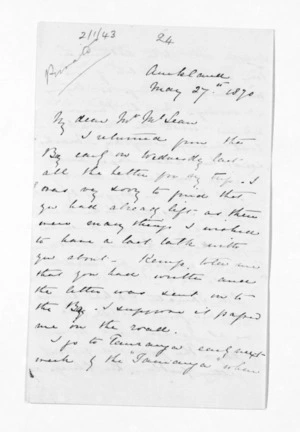 2/1/43
24
Private
Auckland
May 27th 1870
My dear Mr McLean
I returned from the
Bay early on Wednesday last
all the better for my trip. I
was very sorry to find that
you had already left as there
were many things I wished
to have a last talk with
you about. Kemp told me
that you had written and
the letter was sent on to
the Bay. I suppose it passed
me on the road.
I go to Tauranga early next
week by the "Tauranga" when